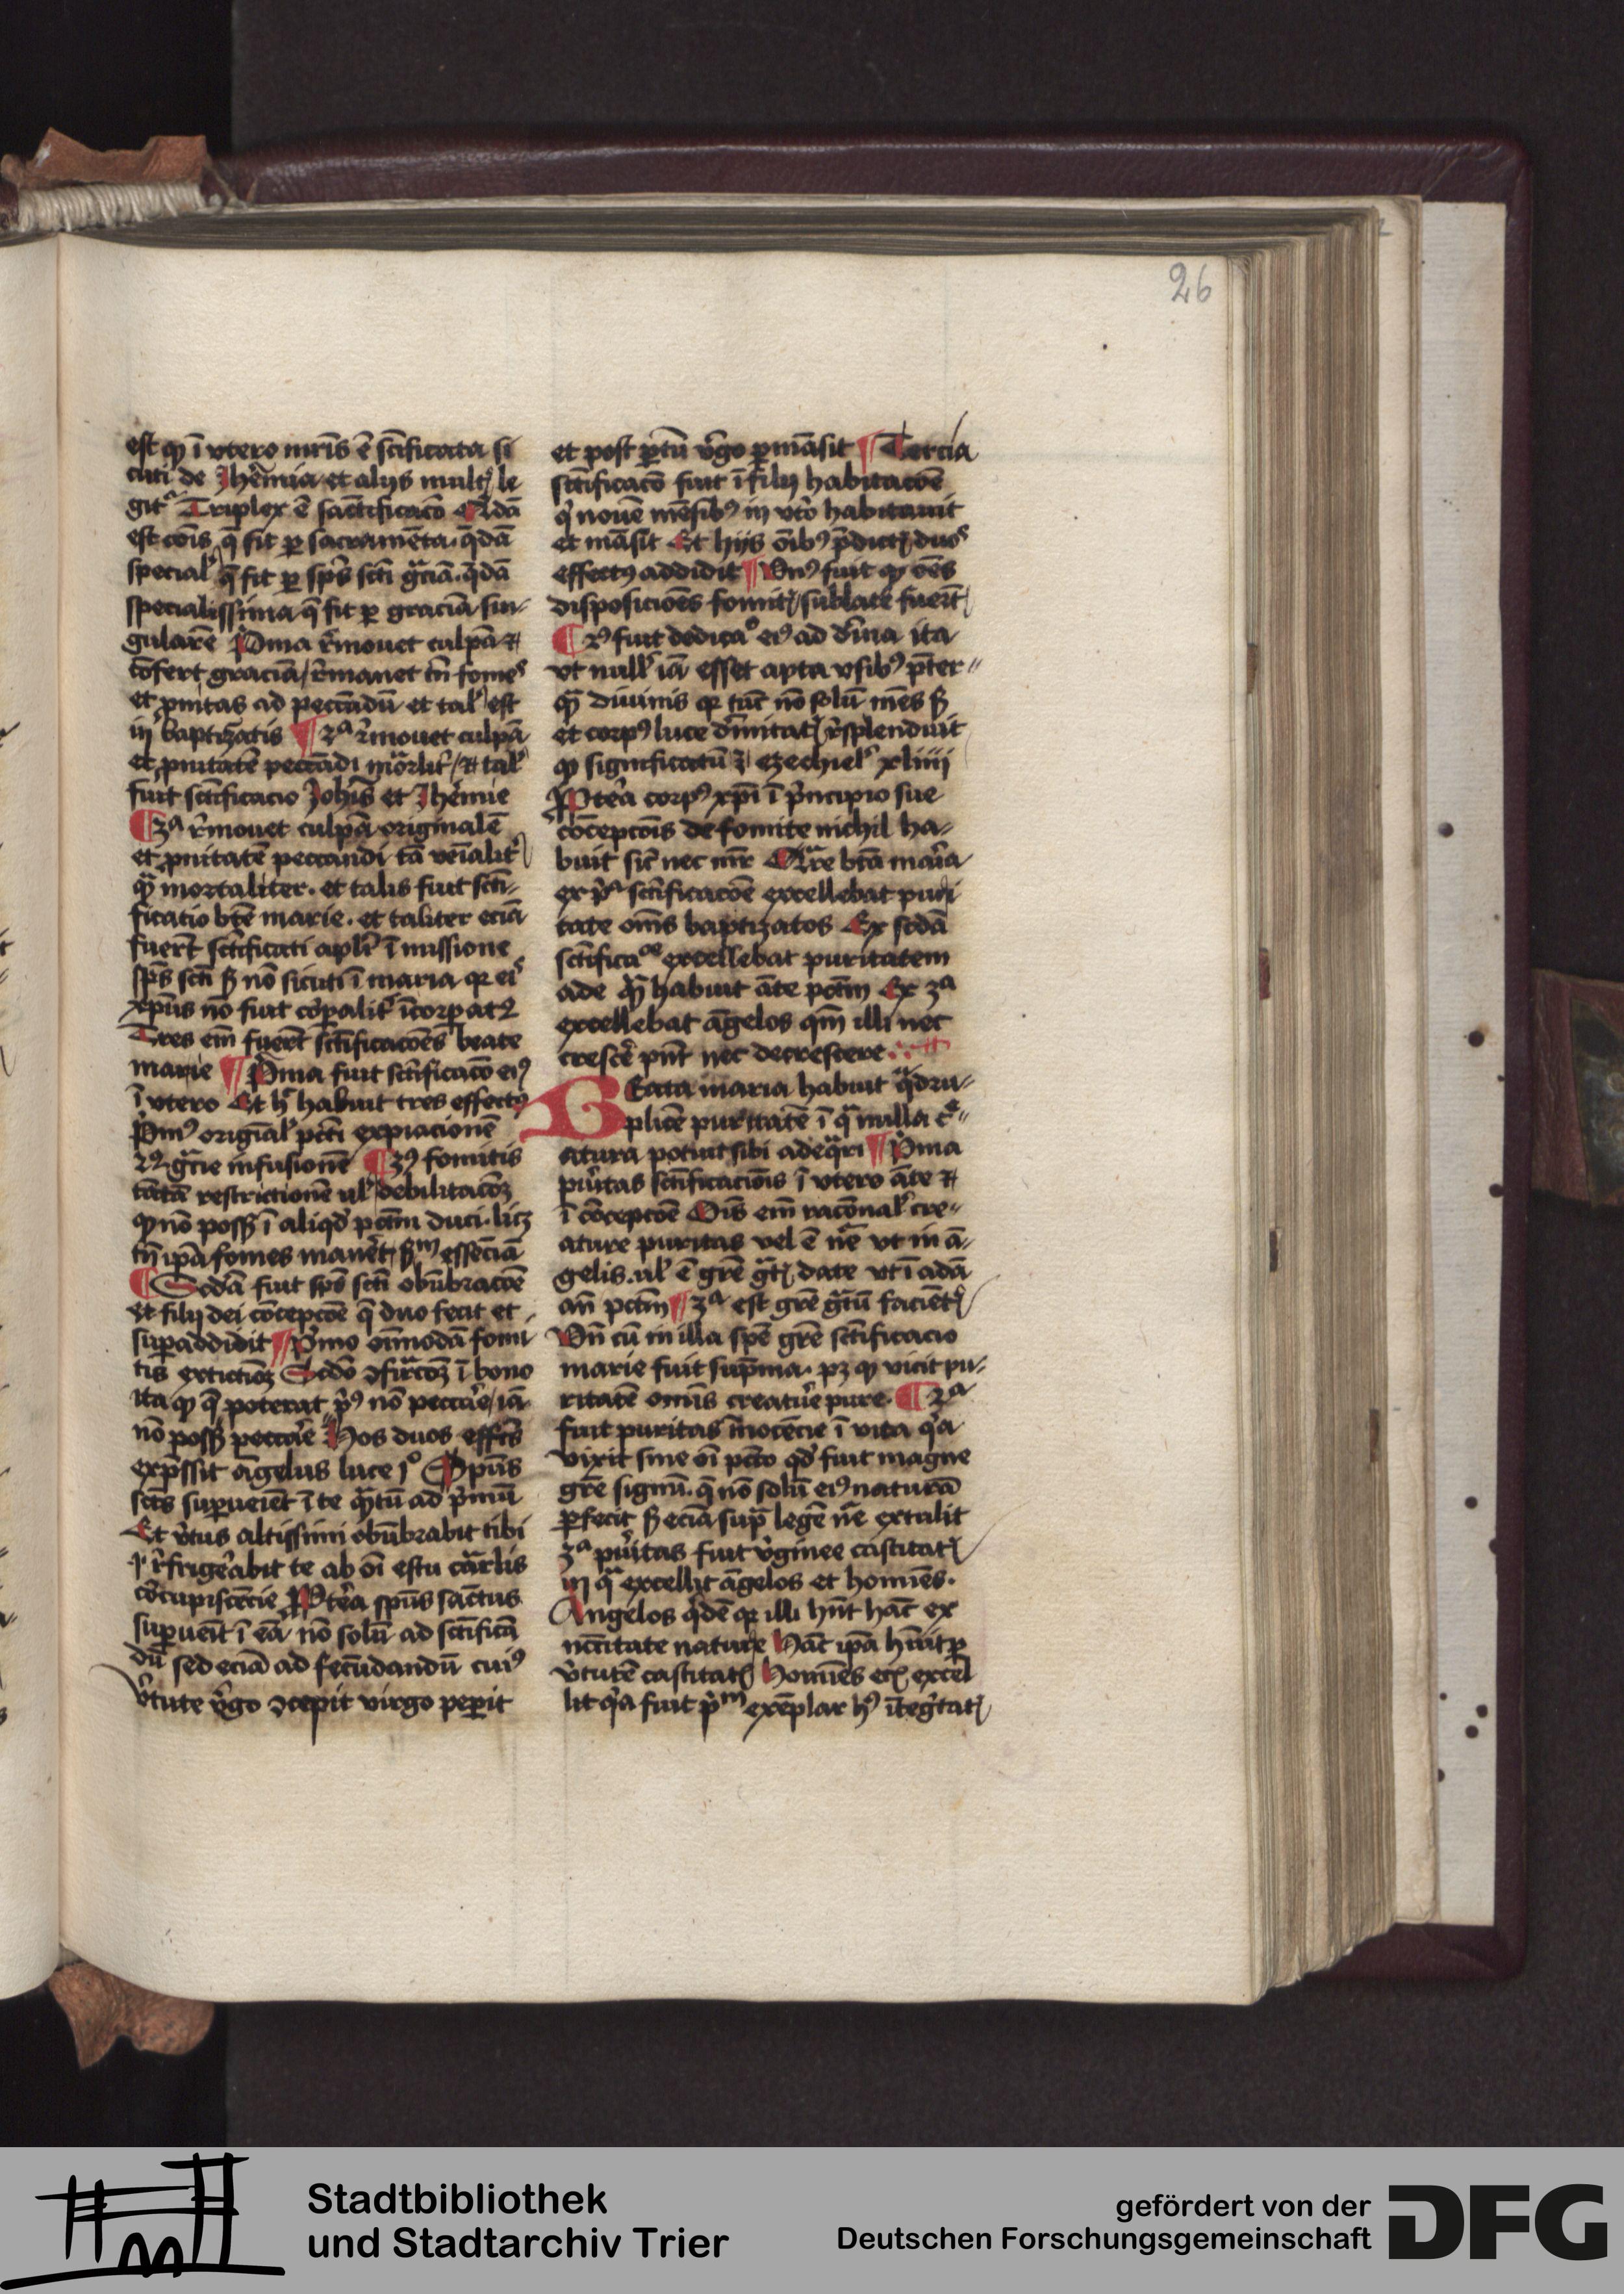 26
est qꝫ ī vtero mr̄is ē sc̄ificata si
cuti de Jherēmia et alijs multꝭ le
gitᷣ Triplex ē sāctificac̄o Qͣdā
est cōis q̄ fit ꝑ sacramēta. q̄dā
special̕ q̄ fit ꝑ sp̄s sc̄ti gr̄ciā. q̄dā
specialissima q̄ fit ꝑ graciā sin-
gularē Pͥma r̕mouet culpā ⁊
cōfert graciā / r̕manet tn̄ fomes
et ꝓnitas ad peccādū et tal̕ est
in baptizatis ¶ 2ᵃ r̕mouet culpā
et ꝓnitatē peccādi mͣorlit̕ / ⁊ tal̕
fuit sc̄tificacio Joh̄is et Jher̕mie
¶ 3ᵃ r̕mouet culpā originalē
et ꝓnitatē peccandi tā veīalit̕
qͣ̄ mortaliter. et talis fuit sc̄ti-
ficatio bt̄e marie. et taliter eciā
fuer̄t sc̄tificati apl̕i ī missione
sp̄s sc̄ti s̕ nō sicuti ī maria qꝛ eis̕
xp̄us nō fuit cōꝑalit̕ īcorꝑatꝰ
Tres em̄ fuer̄t sc̄tificac̄oēs beate
marie ¶ Pͥma fuit sc̄tificac̄o eiꝰ
ī vtero Et hͨ habuit tres effectꝰ
Pͥmꝰ origīal̕ pc̄cti expiacionē
2ꝰ gr̄cie infusionē ¶ 3ꝰ fomitis
tātā restrictionē ul̕ debilitac̄oꝫ
qꝫ nō possꝫ ī aliqd̕ pctm̄ duci. licꝫ
tn̄ ip̄a fomes manēt, s̕ᵐ essēciā
¶ Sc̄dā fuit sp̄s sc̄ti obūbrac̄oē
et filij dei cōcepc̄oē q̄ duo fecit et
suꝑaddidit ¶ Pͥmo oīmodā fomi
tis extictōꝫ Sc̄do ꝯfirͣcōꝫ ī bono
ita qꝫ q̄ poterat pͥꝰ nō pecca᷑re / iā
nō possꝫ pecca᷑re Hos duos effc̄ts
exp̄ssit āgelus luce j° Spūs
sc̄ts suꝑueīet ī te qͣ̄tū ad pͥmū
Et v̕tus altissimi obūbrabit tibi
.i. r̕frige᷑rabit te ab oī estu cͣarlis
cōcupiscēcie Pͣte᷑rea spūs sāctus
suꝑueīt ī eā nō solū ad sc̄tificā
dū sed eciā ad fecūdandū cuiꝰ
v̕tute v̕go ꝯcepit virgo peꝑit
et post ꝑtū v̕go ꝑmāsit ¶ Tercia
sc̄tificac̄o fuit ī filij habitac̄oē
qͥ nouē mēsibꝰ in vte᷑ro habitauit
et māsit Et hijs oībꝰ p̄dictꝭ duos
effectꝰ addidit ¶ Vnꝰ fuit qꝫ oēs
disposicioēs fomitꝭ / sublate fuer̄t
¶ 2ꝰ fuit dedicaᵒ eiꝰ ad diīna ita
vt null̕ iā esset apta vsibꝰ p̄ter-
qͣ̄ diuinis qꝛ tūc nō solū mēs s̕
et corpꝰ luce diīnitatꝭ r̕splenduit
qꝫ significatū ē ezechiel̕ xliiij
Pͣte᷑rea corpꝰ xp̄i ī pͥncipio sue
cōcepcōis de fomite nichil ha-
buit sic̕ nec mr̄ Qͣre bt̄a mar̄ia
ex pͥᵃ sc̄tificac̄oē excellebat puri
tate om̄s baptizatos Ex sc̄dā
sc̄tificaᵒᵉ excellebat puritatem
ade qͣ̄ habuit āte pctm̄ Ex 3ᵃ
excellebat āgelos qm̄ illi nec
cresce᷑re pn̄t nec decrescere
BEata maria habuit qͣdru-
plicē puritatē ī qͣ nulla cͬe-
atura potuit sibi adeqͣri ¶ Pͥma
pu᷑ritas sc̄tificacioīs ī vtero āte ⁊
ī cōcepc̄oē Oīs em̄ rac̄onal̕ cre-
ature puritas vel ē nͣe vt in ā-
gelis. ul̕ ē gr̄e gͣtꝭ date vt ī adā
an̄ pctm̄ ¶ 3ᵃ est gr̄e gͣtū faciētꝭ
Vn̄ cū in illa spē gr̄e sc̄tificacio
marie fuit sup̄ma. pꝫ qꝫ vicit pu-
ritatē omīs creatu᷑re pure. ¶ 2ᵃ
fuit puritas īnocēcie ī vita qͥa
vixit sine oī pc̄to qd̕ fuit magne
gr̄e signū. q̄ nō solū eiꝰ naturā
ꝑfecit s̕ eciā supͣ legē nͣe extulit
3ᵃ pu᷑ritas fuit v̕ginee castitatꝭ
in qͣ excellit āgelos et homiēs.
Angelos qͥdē qꝛ illi hn̄t hāc ex
nc̄citate nature Hāc ip̄a hūit ꝑ
v̕tutē castitatꝭ Homiēs ecꝭ excel
lit qͥa fuit pͥᵐ exēplar hꝰ ītegͥtatꝭ
Stadtbibliothek
und Stadtarchiv Trier
gefördert von der
Deutschen Forschungsgemeinschaft
DFG